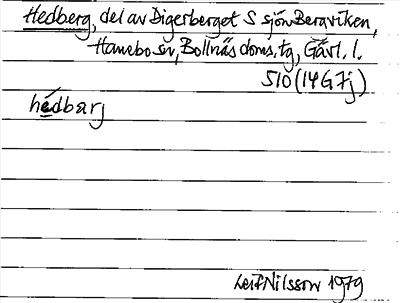 Hedberg, del av Digerberget S sjön Bergviken,
Hanebo sn, Bollnäs doms. tg, Gävl. l.
510 (14G 7j)
hédbarj
Leif Nilsson 1979